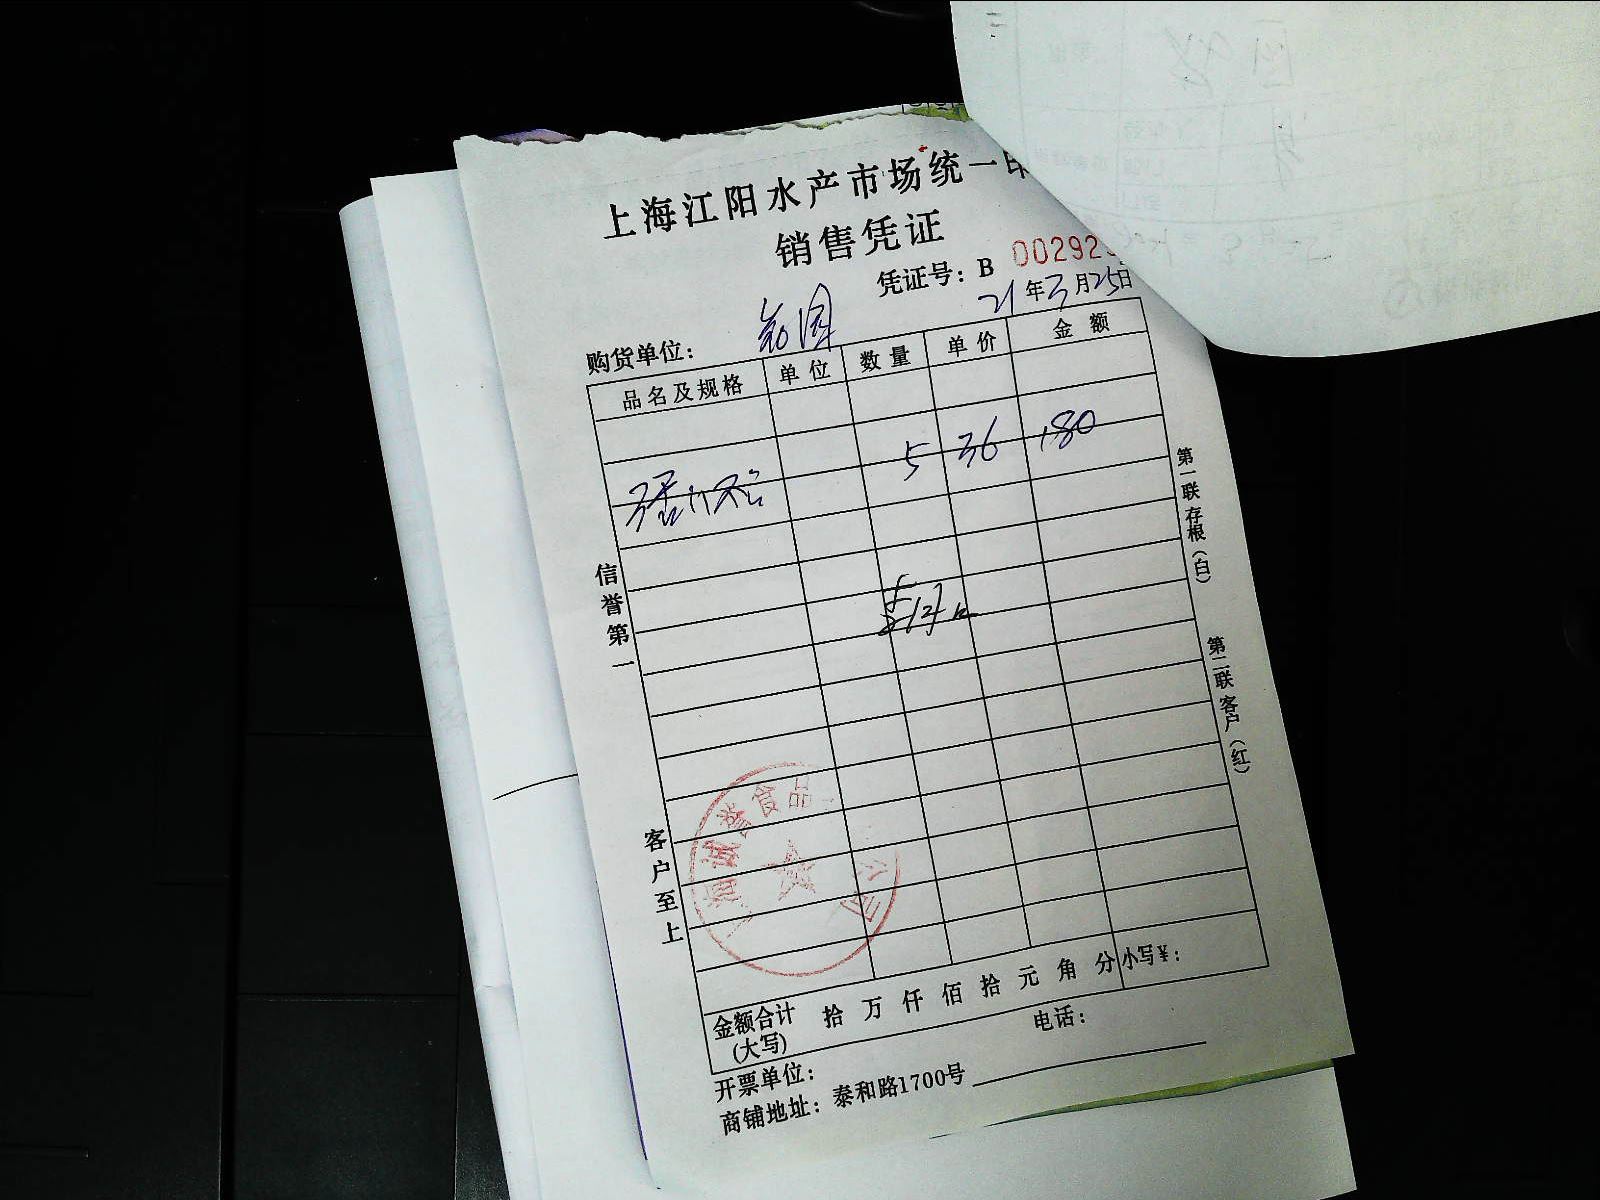 上海江阳水产市场统一印
销售凭证
凭证号：B 00292
21年3月25日
购货单位：
品名及规格 单位 数量 单价 金额
5 36 180
信誉第一
客户至上
第一联存根（白）
第二联客户（红）
诚誉食品
公司
金额合计（大写） 拾 万 仟 佰 拾 元 角 分 小写¥：
开票单位： 电话：
商铺地址：泰和路1700号